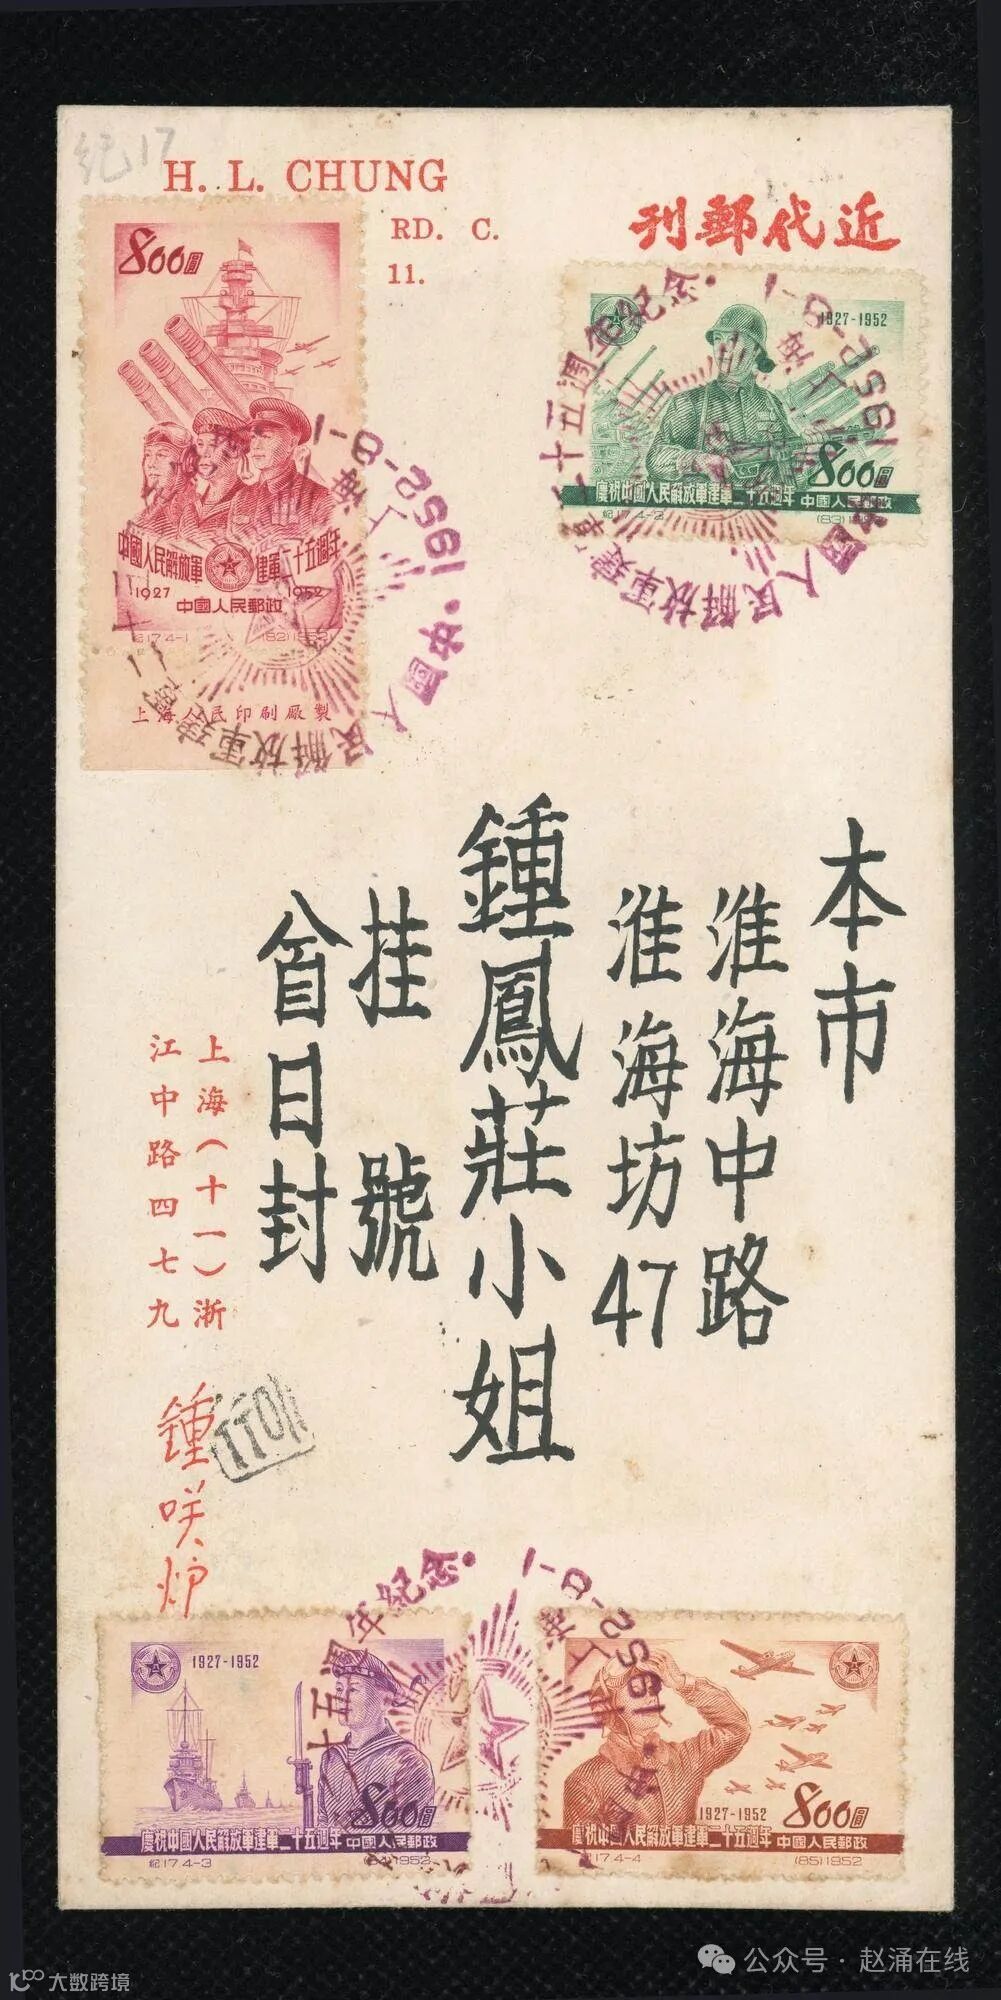 纪17
H. L. CHUNG
RD. C.
11.
近代郵刊
800圓
中國人民解放軍建軍二十五週年
1927 1952
中國人民郵政
紀17.4-1 (82)1952
上海人民印刷廠製
1927-1952
800圓
慶祝中國人民解放軍建軍二十五週年 中國人民郵政
紀17.4-2 (83)1952
中國人民解放軍建軍二十五週年紀念
上海
1952-8-1
本市
淮海中路
淮海坊47
鍾鳳莊小姐
挂號
首日封
上海(十一)浙
江中路四七九
鍾咲炉
1927-1952
800圓
慶祝中國人民解放軍建軍二十五週年 中國人民郵政
紀17.4-3 (84)1952
1927-1952
800圓
慶祝中國人民解放軍建軍二十五週年 中國人民郵政
紀17.4-4 (85)1952
大数跨境
公众号·赵涌在线